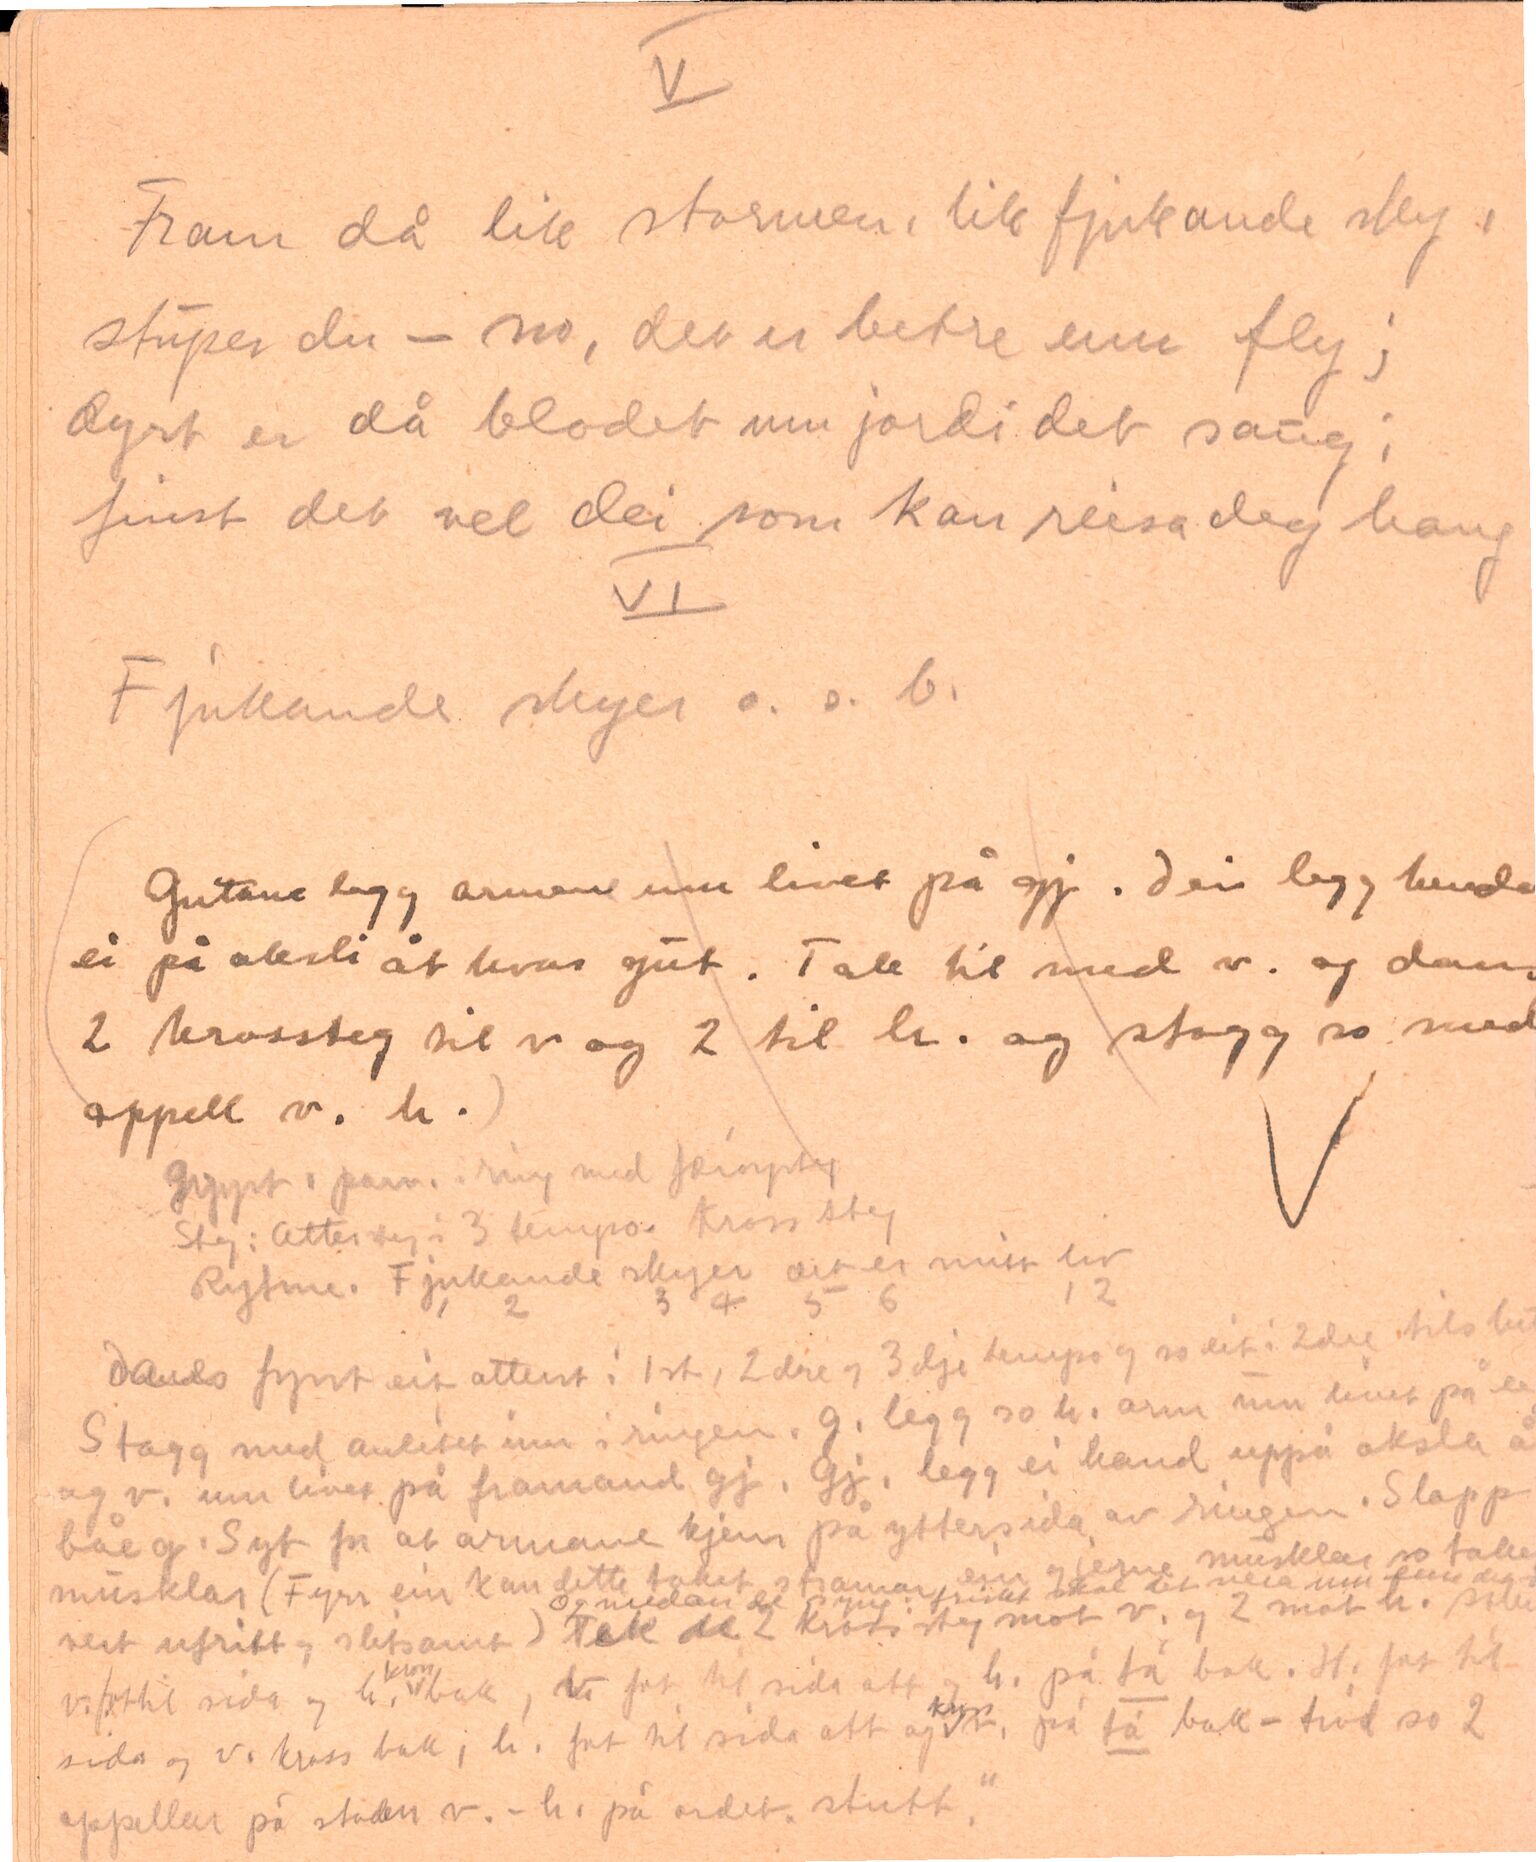 V
Fram då lik stormen, lik fjukande sky,
stüper du – no, det er betre enn fly;
dyrt er då blodet um jordi det saug;
finst det vel dei som kan reisa deg haug
VI
Fjukande skyer o. s. b.
(Gutane legg armane um livet på gj. Dei legg henda
ei på aksli åt kvar gut. Tak til med v. og dans
2 krossteg til v og 2 til h. og stogg so med
appell v. h.)
i parv. i ring med
Steg: Attersteg i 3 tempo. Kross steg
Rytme. Fjukande skyer det er mitt liv
1 2 3 4 5 6 1 2
Dans fyrst eit atterst i 1st, 2dre og 3dje tempo og so eit i 2dre tilslutt
Stogg med anletet inn i ringen. G. legg so h. arm um livet på
og v. um livet på framand gj. Gj. legg ei hand uppå aksla å
båe g. Syt for at armane kjem på yttersida av ringen. Slapp
müsklar (Fyrr ein kan dette taket stramar ein gjerne müsklar so taket
og medan de syng
vert ufritt og slitsamt) Tak de 2 kross steg mot v. og 2 mot h.
v. fot til sida og h. kross bak, v. fot til sida att og h. på tå bak. H. fot til
sida og v. kross bak, h. fot til sida att og v. kross på tå bak – trød so 2
appellar på staden v. – h. på ordet. stutt."